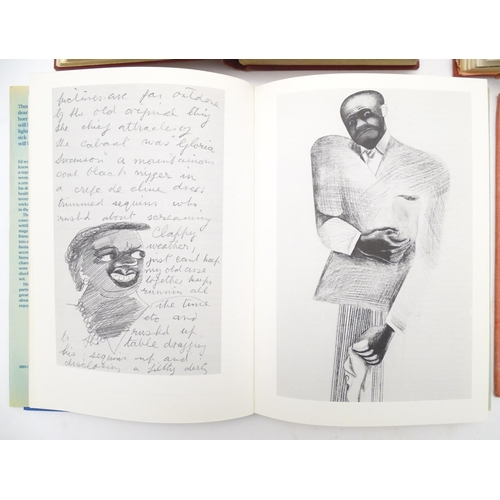 pictures are far outdone
by the old original thing
the chief attraction of
the cabaret was Gloria
Swanson a mountainous
coal black nigger in
a crepe de chine dress
trimmed sequins who
rushd about screaming
Clappy
weather,
just cant keep
my old arse
together keeps
runnin all
the time
etc and
rushd up
to the table dragging
his sequins up and
disclosing a filthy dirty